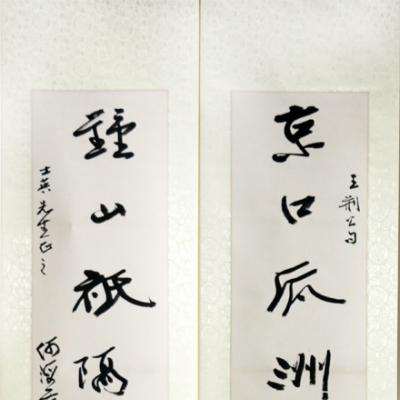 王荆公句
京口瓜洲
鍾山祇隔
士英先生正之
何海